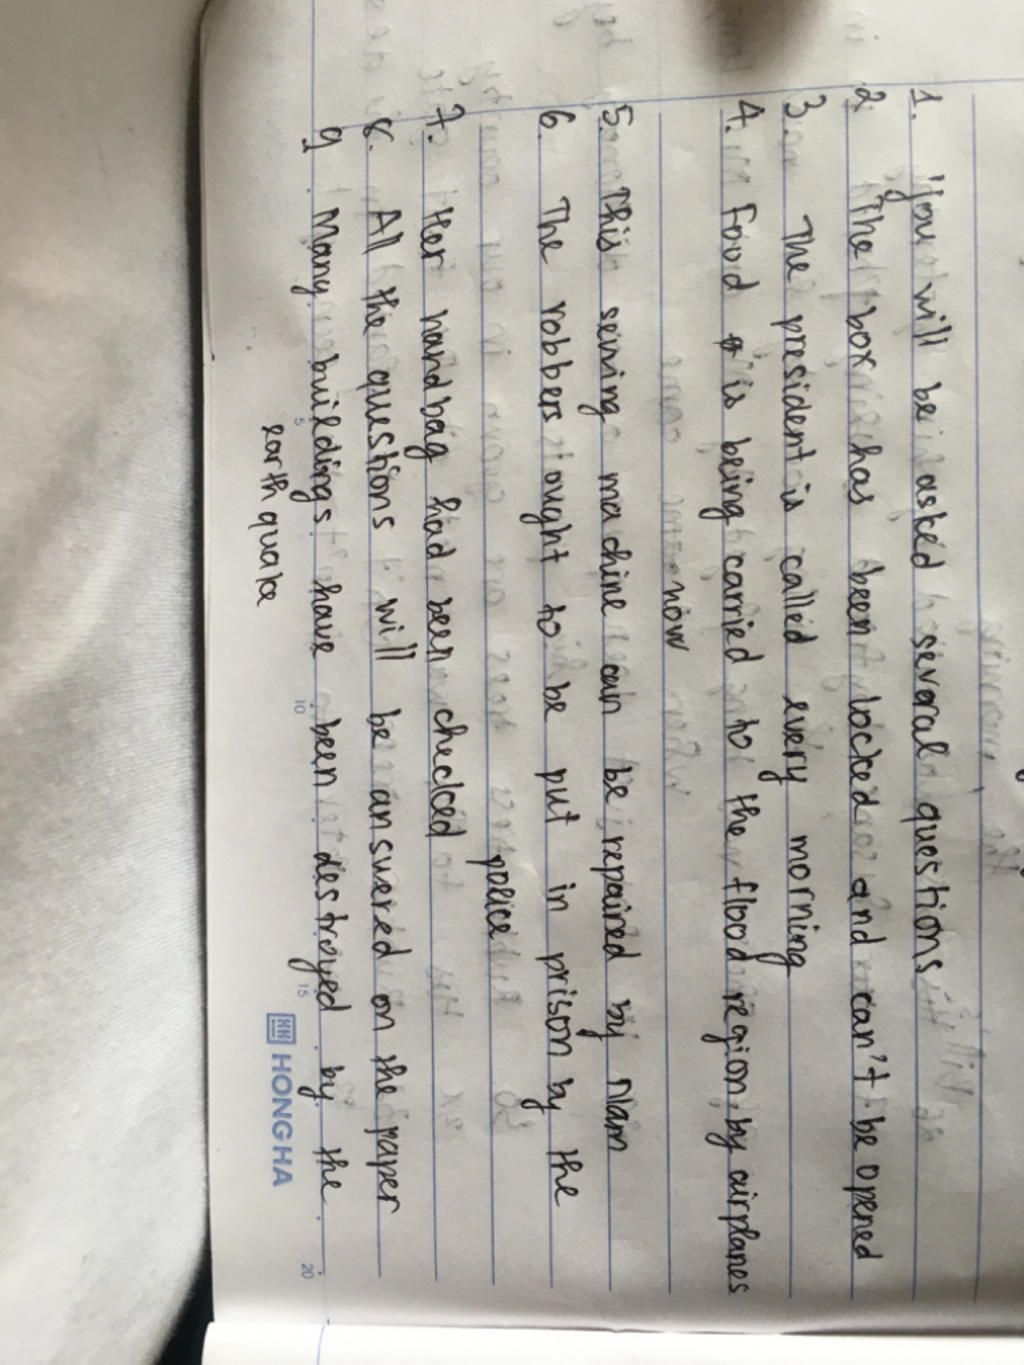 1. You will be asked several questions
2 The box has been locked and can't be opened
3. The president is called every morning
4. Food is being carried to the flood region by airplanes
now
5. This sewing machine can be repaired by Nam
6. The robbers ought to be put in prison by the
police
7. Her handbag had been checked
8. All the questions will be answered on the paper
9. Many buildings have been destroyed by the
earth quake
5 10 15 20
HONG HA